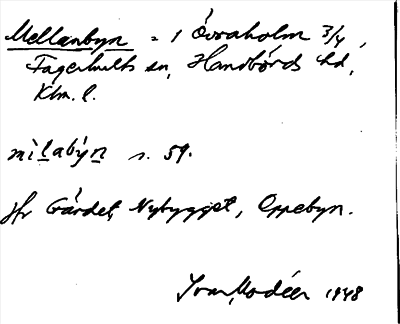 Mellanbyn = 1 Övraholm 3/4,
Fagerhults sn, Handbörds hd,
Klm. l.
mìlabýn s. 59.
Hr Gärdet, Nybygget, Oppebyn.
Ivar Modéer 1948